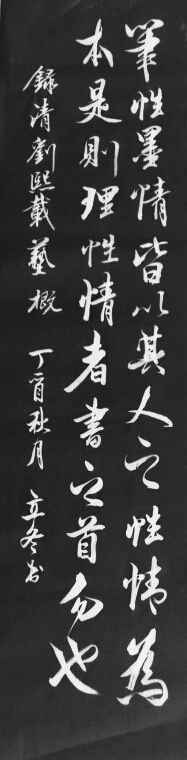 筆性墨情皆以其人之性情為
本是則理性情者書之首勿也
錄清劉熙載藝概 丁酉秋月 立冬书